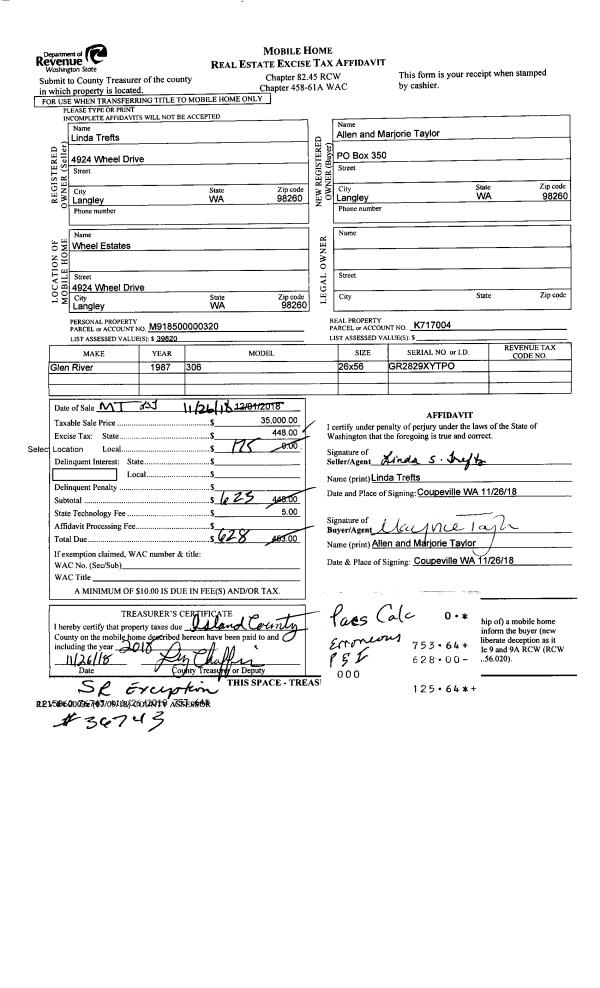 Department of
Revenue
Washington State
MOBILE HOME
REAL ESTATE EXCISE TAX AFFIDAVIT
Submit to County Treasurer of the county
in which property is located.
Chapter 82.45 RCW
Chapter 458-61A WAC
This form is your receipt when stamped
by cashier.
FOR USE WHEN TRANSFERRING TITLE TO MOBILE HOME ONLY
PLEASE TYPE OR PRINT
INCOMPLETE AFFIDAVITS WILL NOT BE ACCEPTED
REGISTERED
OWNER (Seller)
Name
Linda Trefts
4924 Wheel Drive
Street
City State Zip code
Langley WA 98260
Phone number
NEW REGISTERED
OWNER (Buyer)
Name
Allen and Marjorie Taylor
PO Box 350
Street
City State Zip code
Langley WA 98260
Phone number
LOCATION OF
MOBILE HOME
Name
Wheel Estates
Street
4924 Wheel Drive
City State Zip code
Langley WA 98260
LEGAL OWNER
Name
Street
City State Zip code
PERSONAL PROPERTY
PARCEL or ACCOUNT NO. M918500000320
LIST ASSESSED VALUE(S): $ 39820
REAL PROPERTY
PARCEL or ACCOUNT NO. K717004
LIST ASSESSED VALUE(S): $
MAKE YEAR MODEL SIZE SERIAL NO. or I.D. REVENUE TAX CODE NO.
Glen River 1987 306 26x56 GR2829XYTPO
Date of Sale MT 11/26/18 12/01/2018
Taxable Sale Price $ 35,000.00
Excise Tax: State $ 448.00
Select Location Local $ 175 0.00
Delinquent Interest: State $
Local $
Delinquent Penalty $
Subtotal $ 623 448.00
State Technology Fee $ 5.00
Affidavit Processing Fee $
Total Due $ 628 453.00
If exemption claimed, WAC number & title:
WAC No. (Sec/Sub)
WAC Title
A MINIMUM OF $10.00 IS DUE IN FEE(S) AND/OR TAX.
AFFIDAVIT
I certify under penalty of perjury under the laws of the State of
Washington that the foregoing is true and correct.
Signature of
Seller/Agent Linda S. Trefts
Name (print) Linda Trefts
Date and Place of Signing: Coupeville WA 11/26/18
Signature of
Buyer/Agent
Name (print) Allen and Marjorie Taylor
Date & Place of Signing: Coupeville WA 11/26/18
TREASURER'S CERTIFICATE
I hereby certify that property taxes due Island County
County on the mobile home described hereon have been paid to and
including the year 2018
11/26/18
Date County Treasurer or Deputy
Pacs Calc
Erroneous
P & I
000
0·*
753·64+
628·00-
125·64*+
hip of) a mobile home
inform the buyer (new
liberate deception as it
le 9 and 9A RCW (RCW
.56.020).
SR Exception
THIS SPACE - TREAS
COUNTY ASSESSOR
#36743